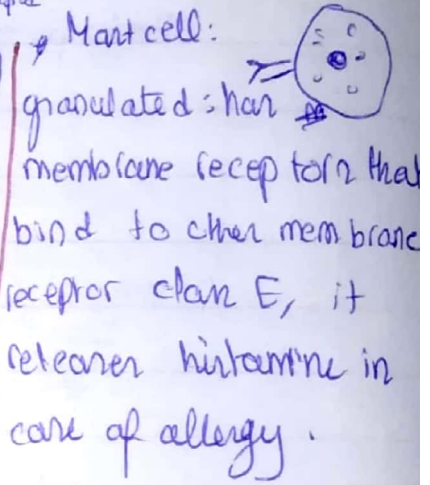 Mast cell:
granulated: has
membrane receptors that
bind to other membrane
receptor class E, it
releases histamine in
case of allergy.